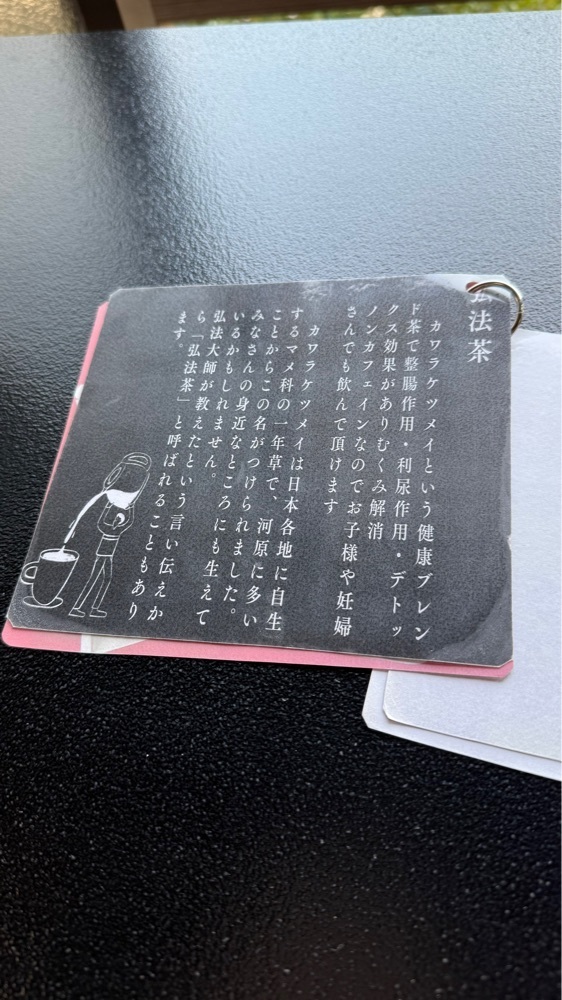 弘法茶
カワラケツメイという健康ブレン
ド茶で整腸作用・利尿作用・デトッ
クス効果がありむくみ解消
ノンカフェインなのでお子様や妊婦
さんでも飲んで頂けます
カワラケツメイは日本各地に自生
するマメ科の一年草で、河原に多い
ことからこの名がつけられました。
みなさんの身近なところにも生えて
いるかもしれません。
弘法大師が教えたという言い伝えか
ら「弘法茶」と呼ばれることもあり
ます。